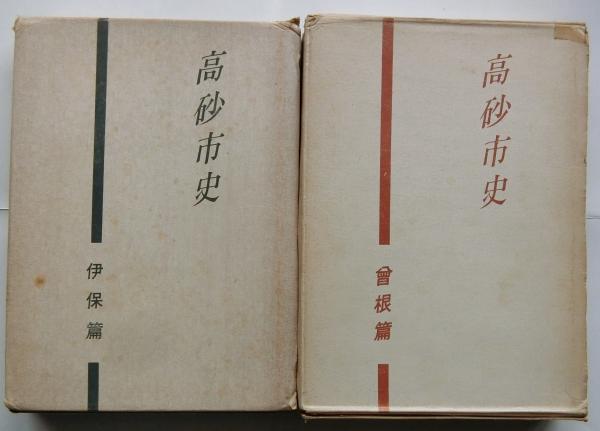 高砂市史
伊保篇
高砂市史
曾根篇